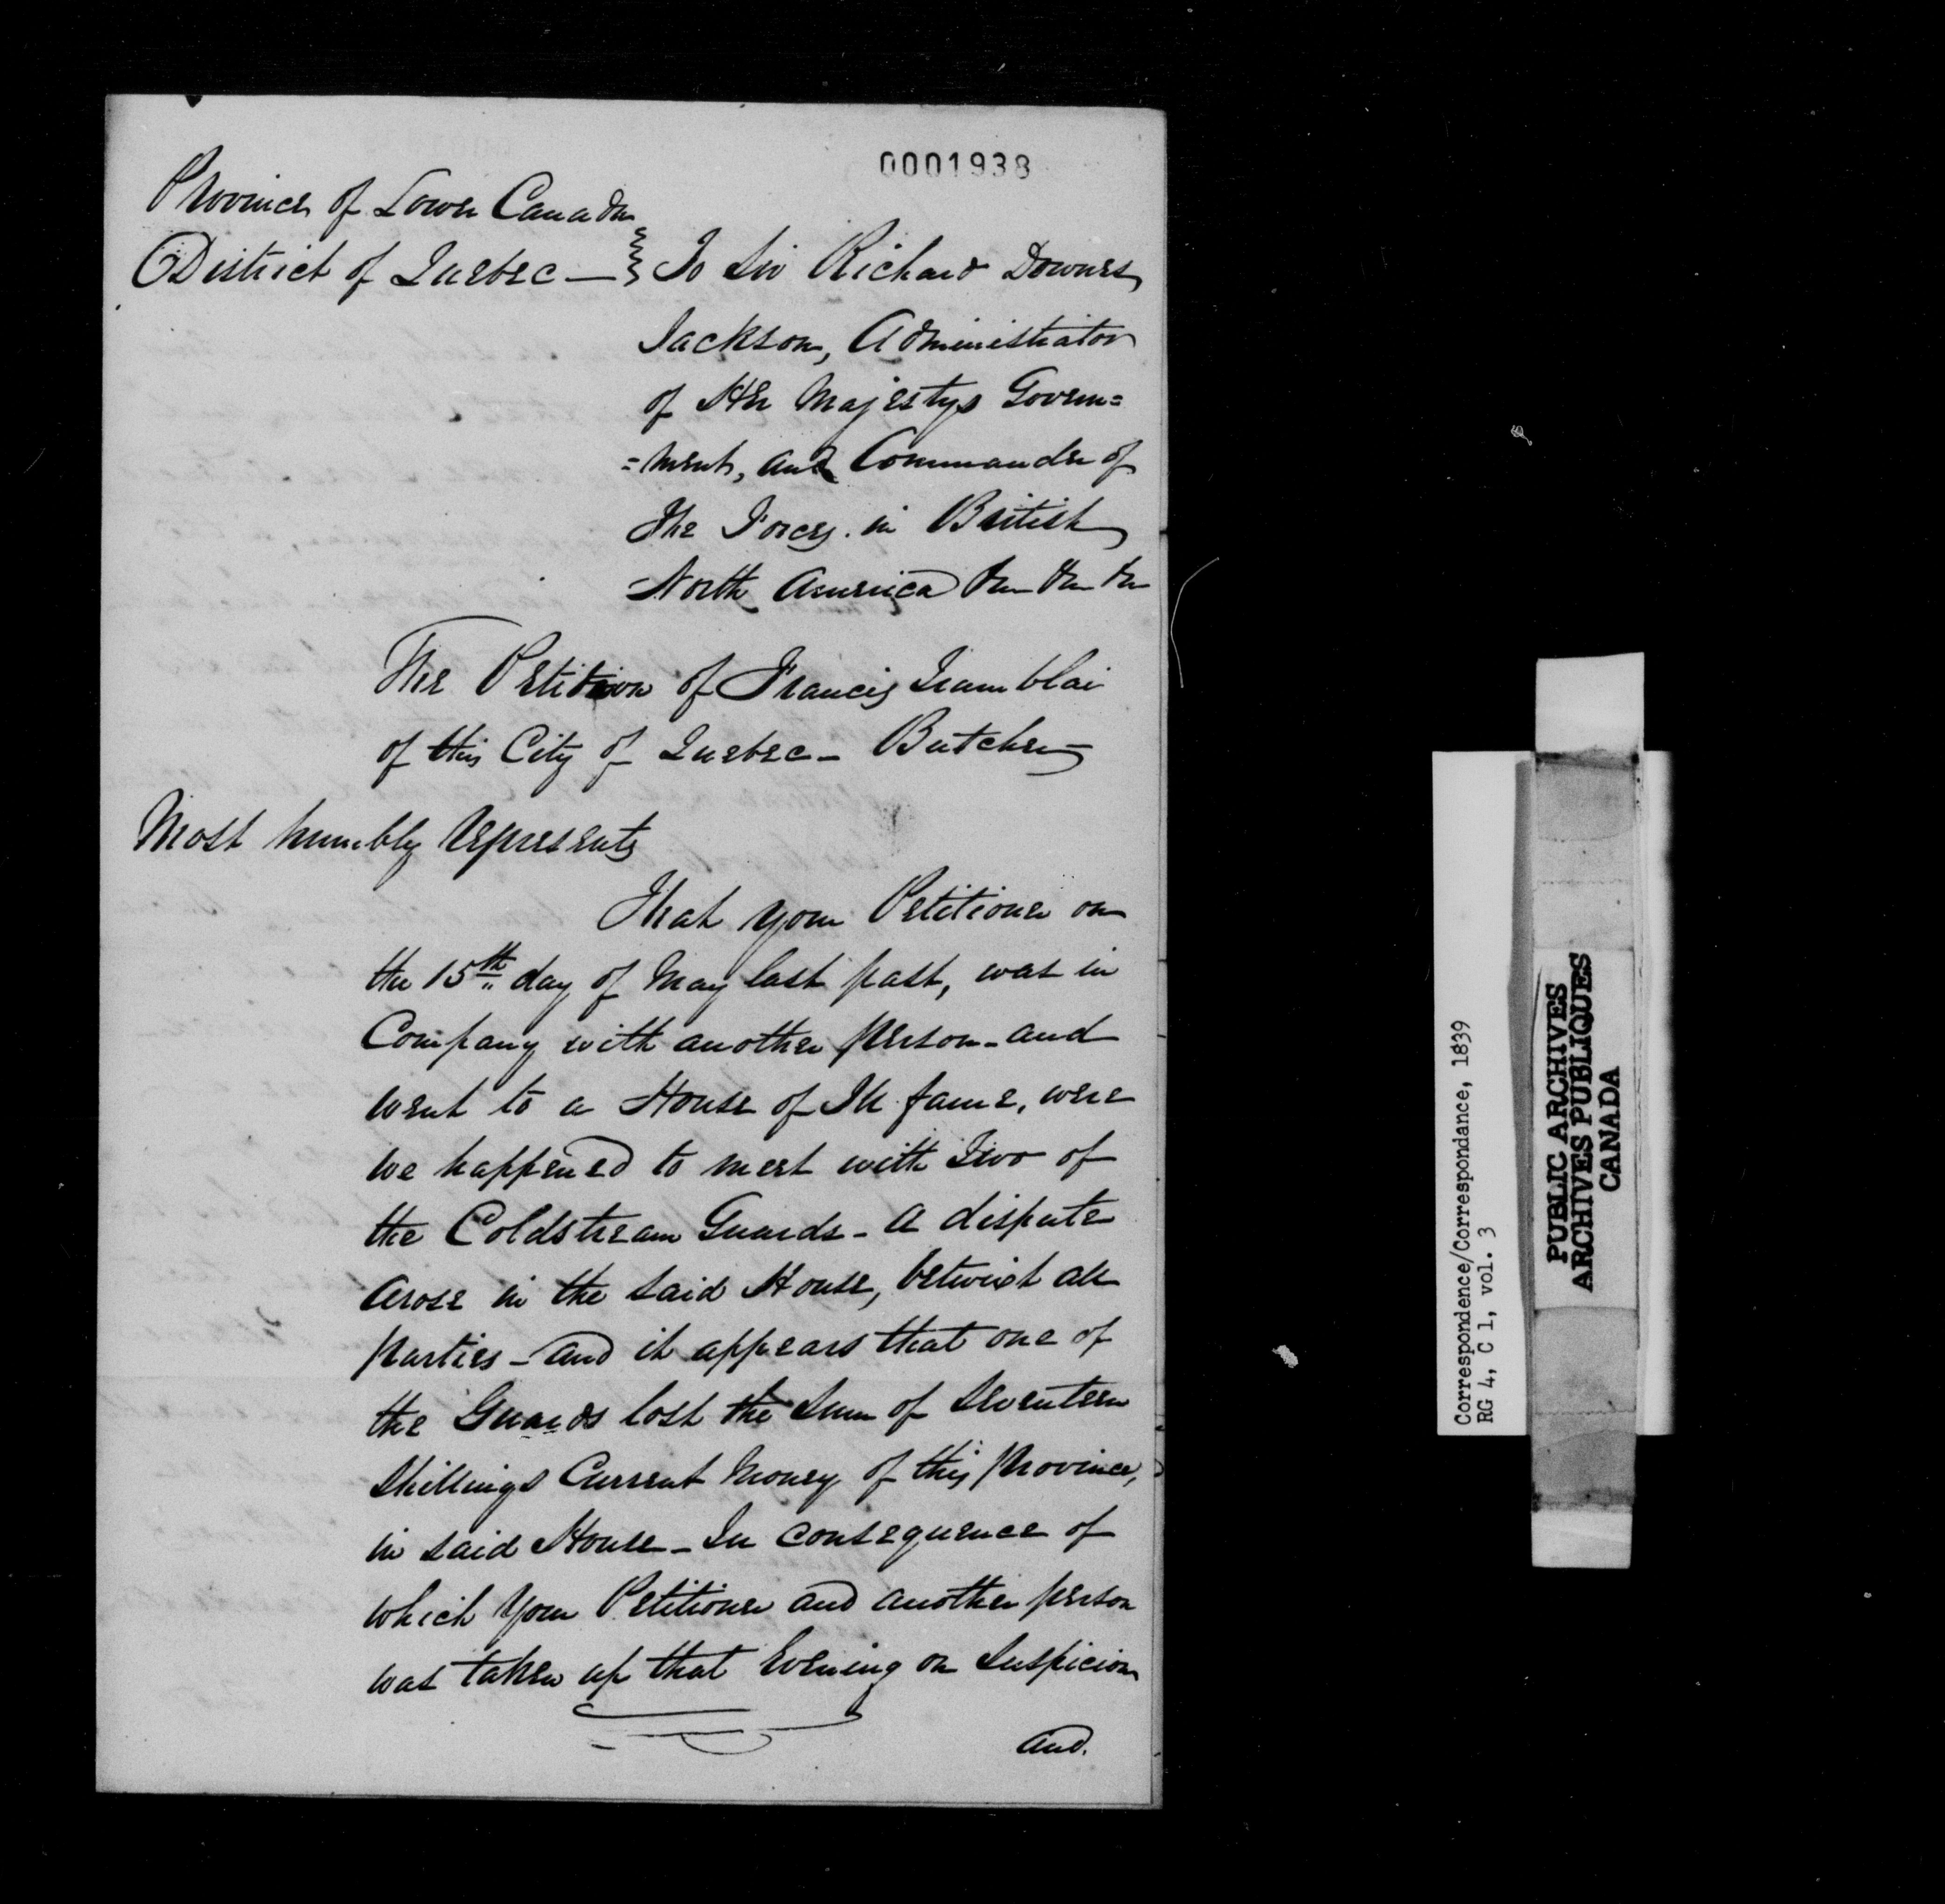 0001938
Province of Lower Canada
District of Quebec — To Sir Richard Downes
Jackson, Administrator
of Her Majestys Govern=
=ment, and Commander of
The Forces in British
North America &c &c &c
The Petition of Francis Tramblai
of this City of Quebec - Butcher -
Most humbly represents
That your Petitioner on
the 15th day of May last past, was in
Company with another person - and
went to a House of Ill fame, were
we happened to meet with Two of
the Coldstream Guards - a dispute
arose in the said House, betwixt all
parties - and it appears that one of
the Guards lost the Sum of Seventeen
Shillings Current Money of this Province,
in said House - In consequence of
which your Petitioner and another person
was taken up that Evening on Suspicion
and.
Correspondence/Correspondance, 1839
RG 4, C 1, vol. 3
PUBLIC ARCHIVES
ARCHIVES PUBLIQUES
CANADA